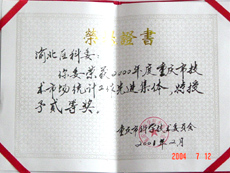 荣誉證書
渝北区科委：
你委荣获2000年度重庆市技
术市场统计工作先进集体，特授
予贰等奖。
重庆市科学技术委员会
2001年2月
2004 7 12